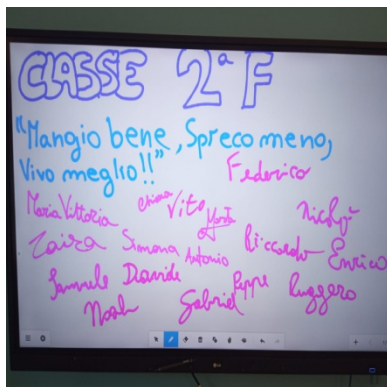 CLASSE 2ª F
"Mangio bene, Spreco meno,
Vivo meglio!!"
Federico
Maria Vittoria Chiara Vito Marta Michy
Zaira Simona Antonio Riccardo Enrico
Samuele Davide Peppe Ruggero
Noah Gabriel
LG